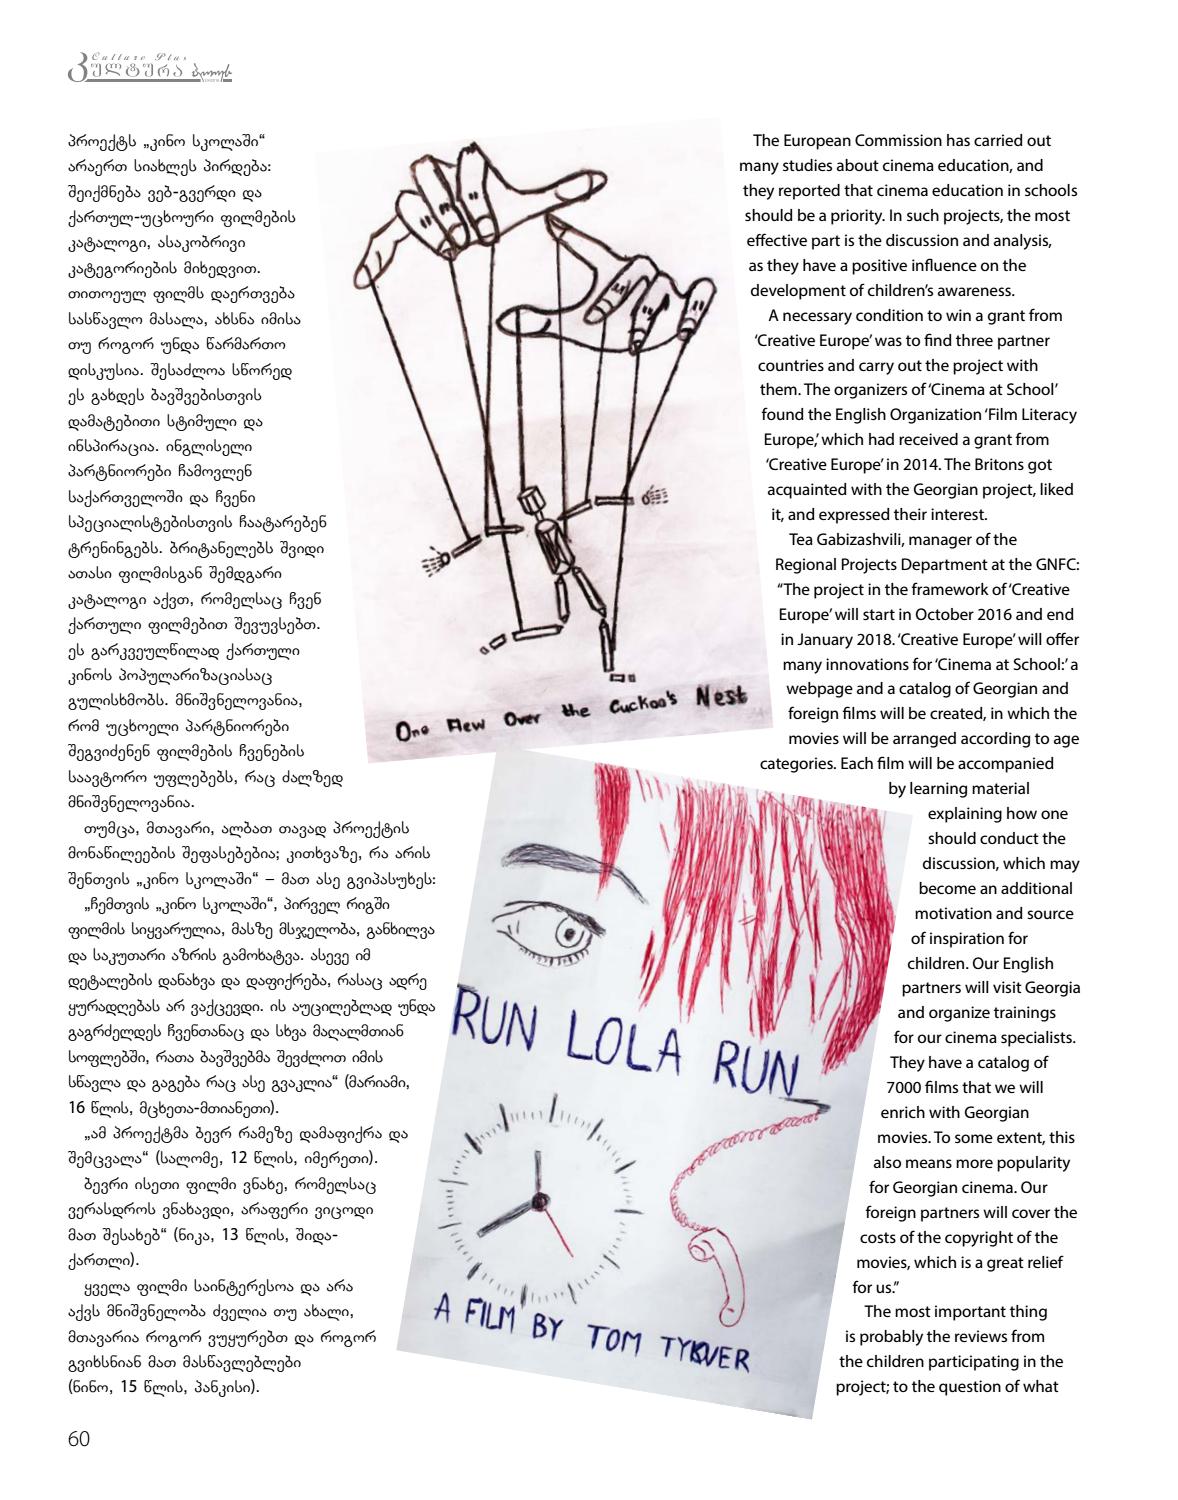 Culture Plus
კულტურა პლიუს
პროექტს „კინო სკოლაში“
არაერთ სიახლეს პირდება:
შეიქმნება ვებ-გვერდი და
ქართულ-უცხოური ფილმების
კატალოგი, ასაკობრივი
კატეგორიების მიხედვით.
თითოეულ ფილმს დაერთვება
სასწავლო მასალა, ახსნა იმისა
თუ როგორ უნდა წარმართო
დისკუსია. შესაძლოა სწორედ
ეს გახდეს ბავშვებისთვის
დამატებითი სტიმული და
ინსპირაცია. ინგლისელი
პარტნიორები ჩამოვლენ
საქართველოში და ჩვენი
სპეციალისტებისთვის ჩაატარებენ
ტრენინგებს. ბრიტანელებს შვიდი
ათასი ფილმისგან შემდგარი
კატალოგი აქვთ, რომელსაც ჩვენ
ქართული ფილმებით შევუვსებთ.
ეს გარკვეულწილად ქართული
კინოს პოპულარიზაციასაც
გულისხმობს. მნიშვნელოვანია,
რომ უცხოელი პარტნიორები
შეგვიძენენ ფილმების ჩვენების
საავტორო უფლებებს, რაც ძალზედ
მნიშვნელოვანია.
თუმცა, მთავარი, ალბათ თავად პროექტის
მონაწილეების შეფასებებია; კითხვაზე, რა არის
შენთვის „კინო სკოლაში“ – მათ ასე გვიპასუხეს:
„ჩემთვის „კინო სკოლაში“, პირველ რიგში
ფილმის სიყვარულია, მასზე მსჯელობა, განხილვა
და საკუთარი აზრის გამოხატვა. ასევე იმ
დეტალების დანახვა და დაფიქრება, რასაც ადრე
ყურადღებას არ ვაქცევდი. ის აუცილებლად უნდა
გაგრძელდეს ჩვენთანაც და სხვა მაღალმთიან
სოფლებში, რათა ბავშვებმა შევძლოთ იმის
სწავლა და გაგება რაც ასე გვაკლია“ (მარიამი,
16 წლის, მცხეთა-მთიანეთი).
„ამ პროექტმა ბევრ რამეზე დამაფიქრა და
შემცვალა“ (სალომე, 12 წლის, იმერეთი).
ბევრი ისეთი ფილმი ვნახე, რომელსაც
ვერასდროს ვნახავდი, არაფერი ვიცოდი
მათ შესახებ“ (ნიკა, 13 წლის, შიდა-
ქართლი).
ყველა ფილმი საინტერესოა და არა
აქვს მნიშვნელობა ძველია თუ ახალი,
მთავარია როგორ ვუყურებთ და როგორ
გვიხსნიან მათ მასწავლებლები
(ნინო, 15 წლის, პანკისი).
One Flew Over the Cuckoo's Nest
RUN LOLA RUN
A FILM BY TOM TYKVER
The European Commission has carried out
many studies about cinema education, and
they reported that cinema education in schools
should be a priority. In such projects, the most
effective part is the discussion and analysis,
as they have a positive influence on the
development of children’s awareness.
A necessary condition to win a grant from
‘Creative Europe’ was to find three partner
countries and carry out the project with
them. The organizers of ‘Cinema at School’
found the English Organization ‘Film Literacy
Europe,’ which had received a grant from
‘Creative Europe’ in 2014. The Britons got
acquainted with the Georgian project, liked
it, and expressed their interest.
Tea Gabizashvili, manager of the
Regional Projects Department at the GNFC:
“The project in the framework of ‘Creative
Europe’ will start in October 2016 and end
in January 2018. ‘Creative Europe’ will offer
many innovations for ‘Cinema at School:’ a
webpage and a catalog of Georgian and
foreign films will be created, in which the
movies will be arranged according to age
categories. Each film will be accompanied
by learning material
explaining how one
should conduct the
discussion, which may
become an additional
motivation and source
of inspiration for
children. Our English
partners will visit Georgia
and organize trainings
for our cinema specialists.
They have a catalog of
7000 films that we will
enrich with Georgian
movies. To some extent, this
also means more popularity
for Georgian cinema. Our
foreign partners will cover the
costs of the copyright of the
movies, which is a great relief
for us.”
The most important thing
is probably the reviews from
the children participating in the
project; to the question of what
60